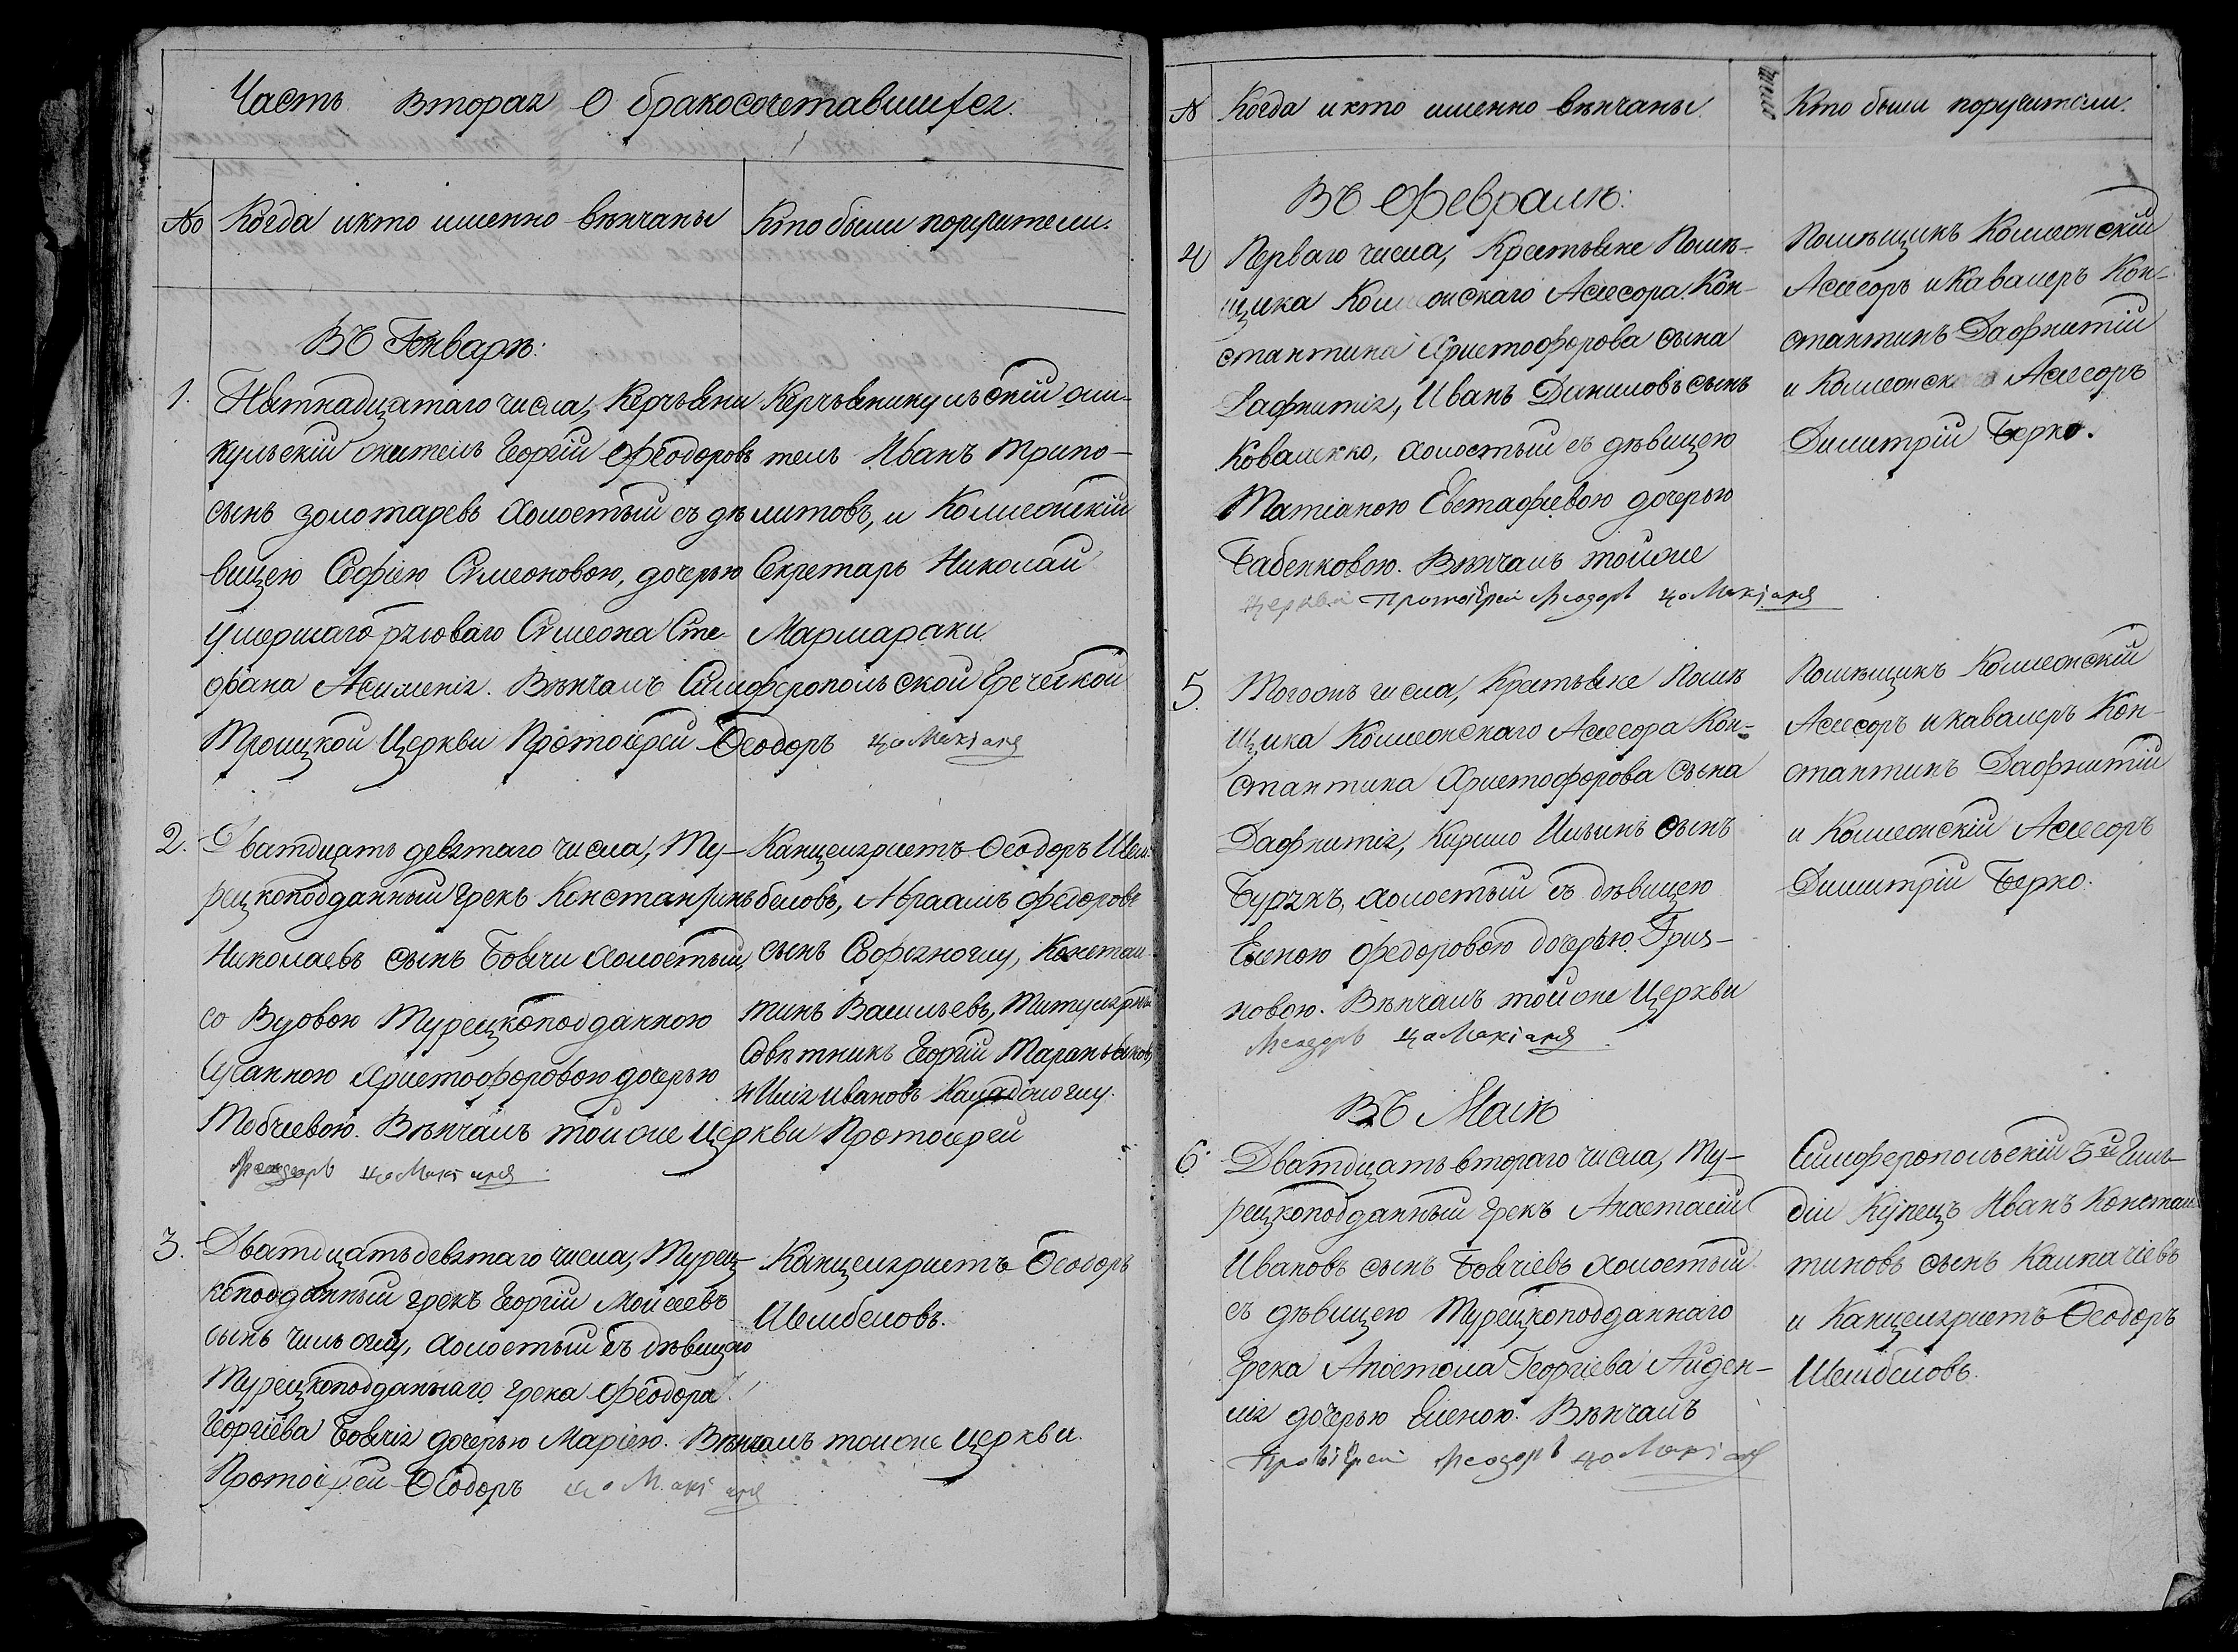 Часть Вторая О бракосочетавшихся.
№ Когда и кто именно вѣнчаны Кто были поручители.
Въ Генварѣ:
1. Пятнадцатаго числа, Керчьени
кульскій житель Георгій Феодоровъ
сынъ Золотаревъ холостый съ дѣ
вицею Софіею Симеоновою, дочерью
умершаго рядоваго Симеона Сте
фана Асименія. Вѣнчалъ Симферопольской Греческой
Троицкой Церкви Протоіерей Ѳеодоръ
Керчьеникульскій жи-
тель Иванъ Трипо-
литовъ, и Коллежскій
Секретарь Николай
Мармараки
2. Дватдцать девятаго числа, Ту-
рецкоподданный грекъ Константинъ
Николаевъ сынъ Боячи холостый,
со Вдовою Турецкоподданною
Сусанною Христофоровою дочерью
Тобчіевою. Вѣнчалъ тойже Церкви Протоіерей
Ѳеодоръ
Канцеляристъ Ѳеодоръ Шем-
беловъ, Авраамъ Федоровъ
сынъ Софіяноглу, Констан-
тинъ Васильевъ, Титулярный
Совѣтникъ Георгій
и Илія Ивановъ
3. Дватдцатьдевятаго числа, Турец-
коподданный грекъ Георгій Моисеевъ
сынъ Чильоглу, холостый съ дѣвицею
Турецкоподданнаго грека Феодора
Георгіева Боячія дочерью Маріею. Вѣнчалъ тойже Церкви.
Протоіерей Ѳеодоръ
Канцеляристъ Ѳеодоръ
Шембеловъ.
№ Когда и кто именно вѣнчаны Кто были поручители.
Въ Февралѣ:
4 Перваго числа, Крестьяне Помѣ-
щика Коллежскаго Асессора Кон-
стантина Христофорова сына
Дафнитія, Иванъ Даниловъ сынъ
Коваленко, холостый съ дѣвицею
Татіаною Евстафіевою дочерью
Бабенковою. Вѣнчалъ тойже
Церкви Протоіерей Ѳеодоръ
Помѣщикъ Коллежскій
Асессоръ и Кавалеръ Кон-
стантинъ Дафнитій
и Коллежскій Асессоръ
Димитрій Берко.
5. Тогожъ числа, Крестьяне Помѣ
щика Коллежскаго Асессора Кон-
стантина Христофорова сына
Дафнитія, Кирило Ильинъ сынъ
Бурякъ, холостый съ дѣвицею
Еленою Федоровою дочерью Гриз-
новою. Вѣнчалъ тойже Церкви
Ѳеодоръ
Помѣщикъ Коллежскій
Асессоръ и кавалеръ Кон-
стантинъ Дафнитій
и Коллежскій Асессоръ
Димитрій Берко.
Въ Маіѣ
6. Дватдцатьвтораго числа, Ту-
рецкоподданный грекъ Анастасій
Ивановъ сынъ Боячіевъ холостый
съ дѣвицею Турецкоподданнаго
Грека Апостола Георгіева Айден-
лія дочерью Еленою. Вѣнчалъ
Протоіерей Ѳеодоръ
Симферопольскій 3й Гиль-
діи Купецъ Иванъ Констан
тиновъ сынъ Калпачіевъ
и Канцеляристъ Ѳеодоръ
Шембеловъ.